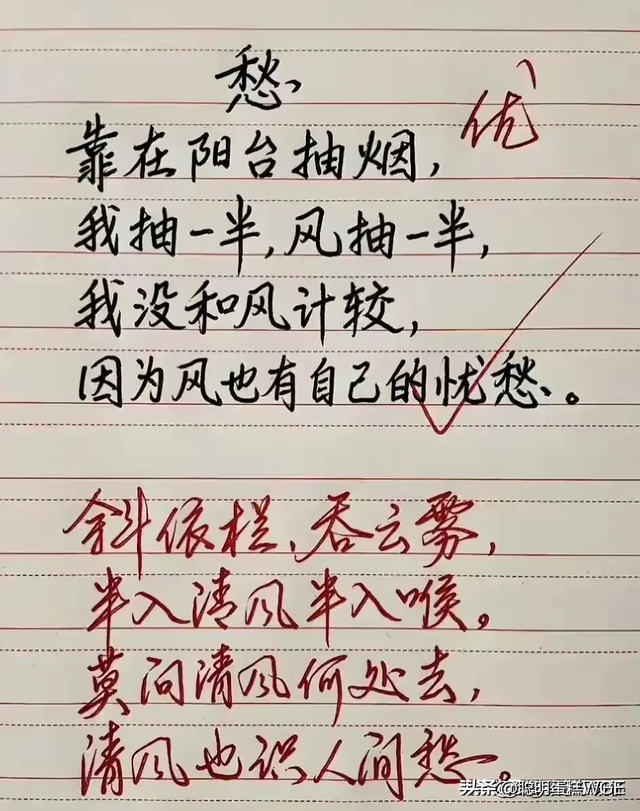 愁
优
靠在阳台抽烟，
我抽一半，风抽一半，
我没和风计较，
因为风也有自己的忧愁。
斜依栏，吞云雾，
半入清风半入喉。
莫问清风何处去，
清风也识人间愁。
头条@聪明蛋糕WGE